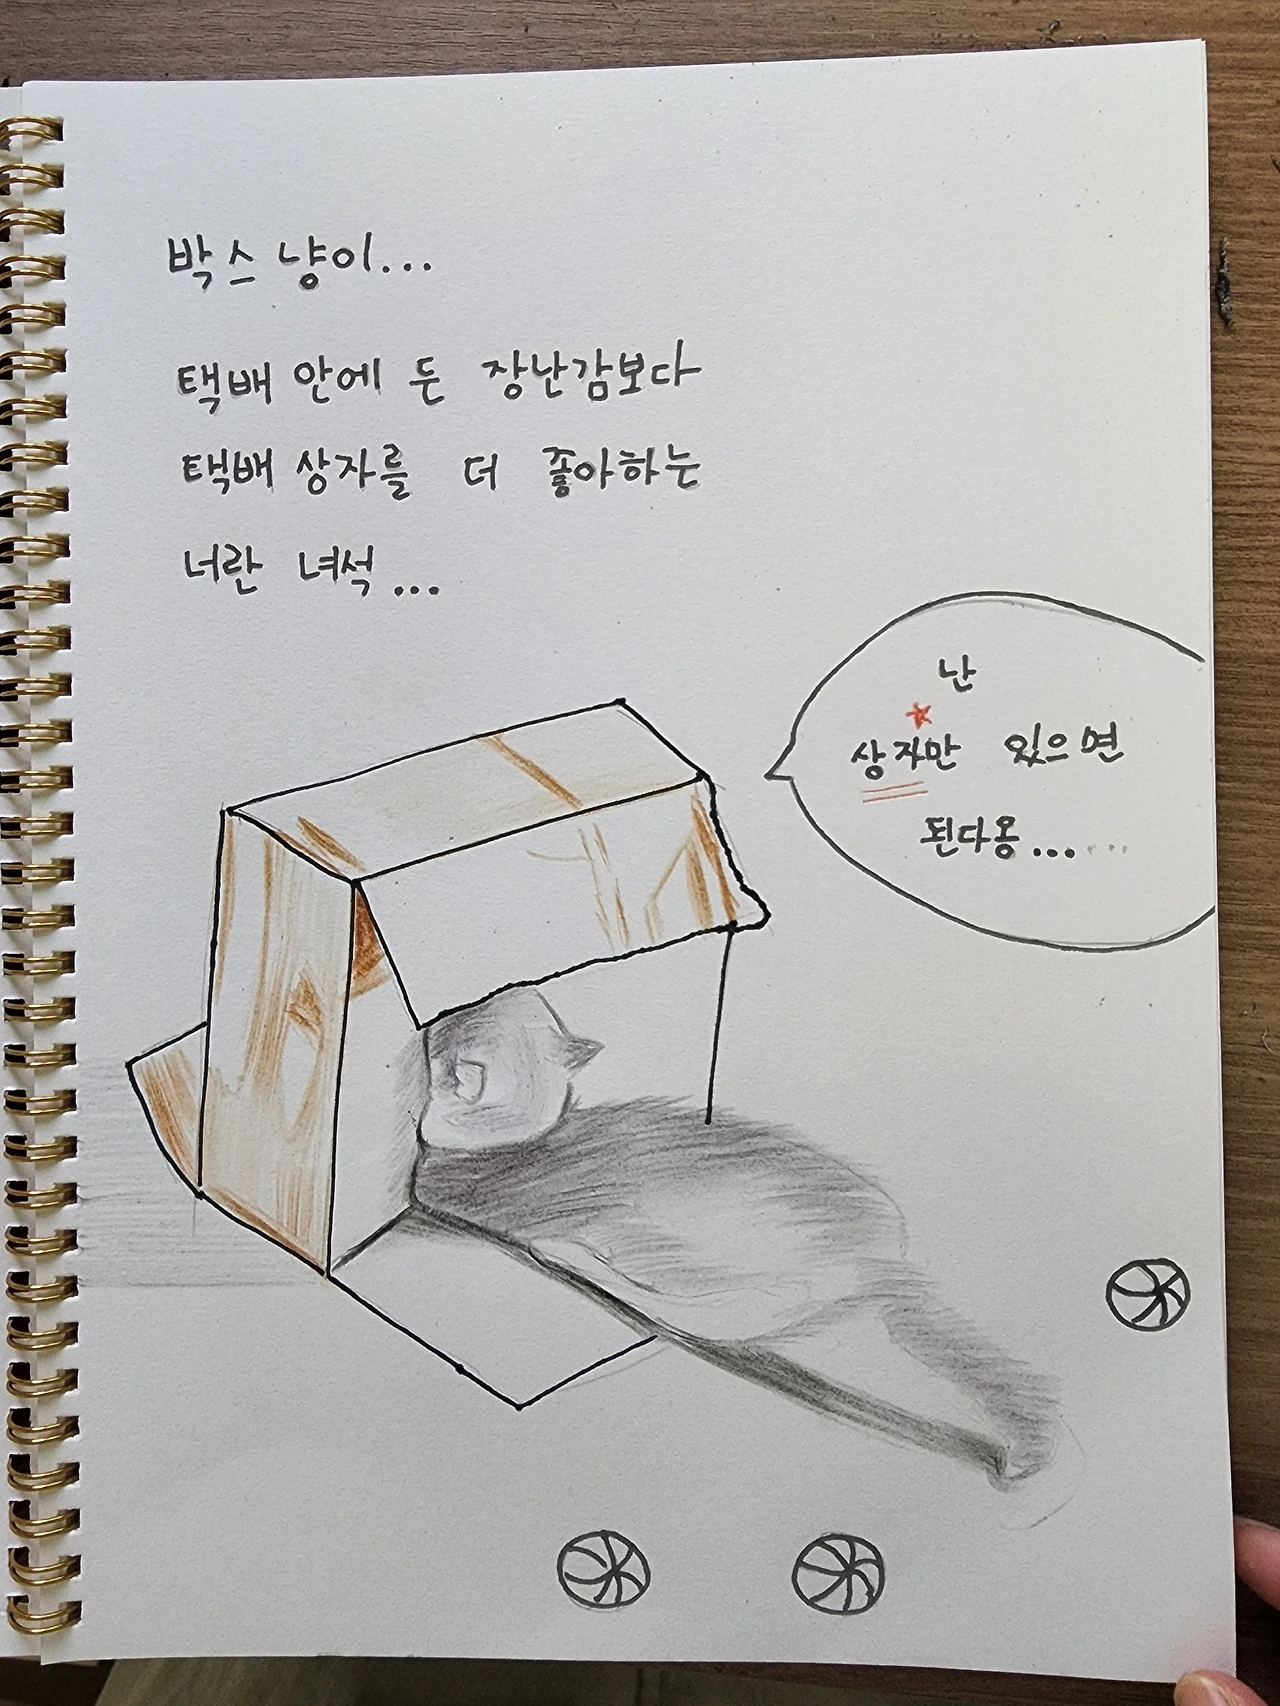 박스 냥이...
택배 안에 든 장난감보다
택배 상자를 더 좋아하는
너란 녀석...
난
상자만 있으면
된다옹.....